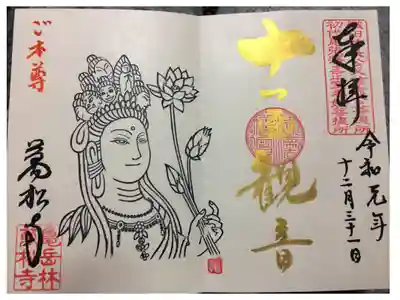 奉拝
令和元年
十二月三十一日
十一
観音
ご本尊
萬松寺
亀岳林
萬松寺